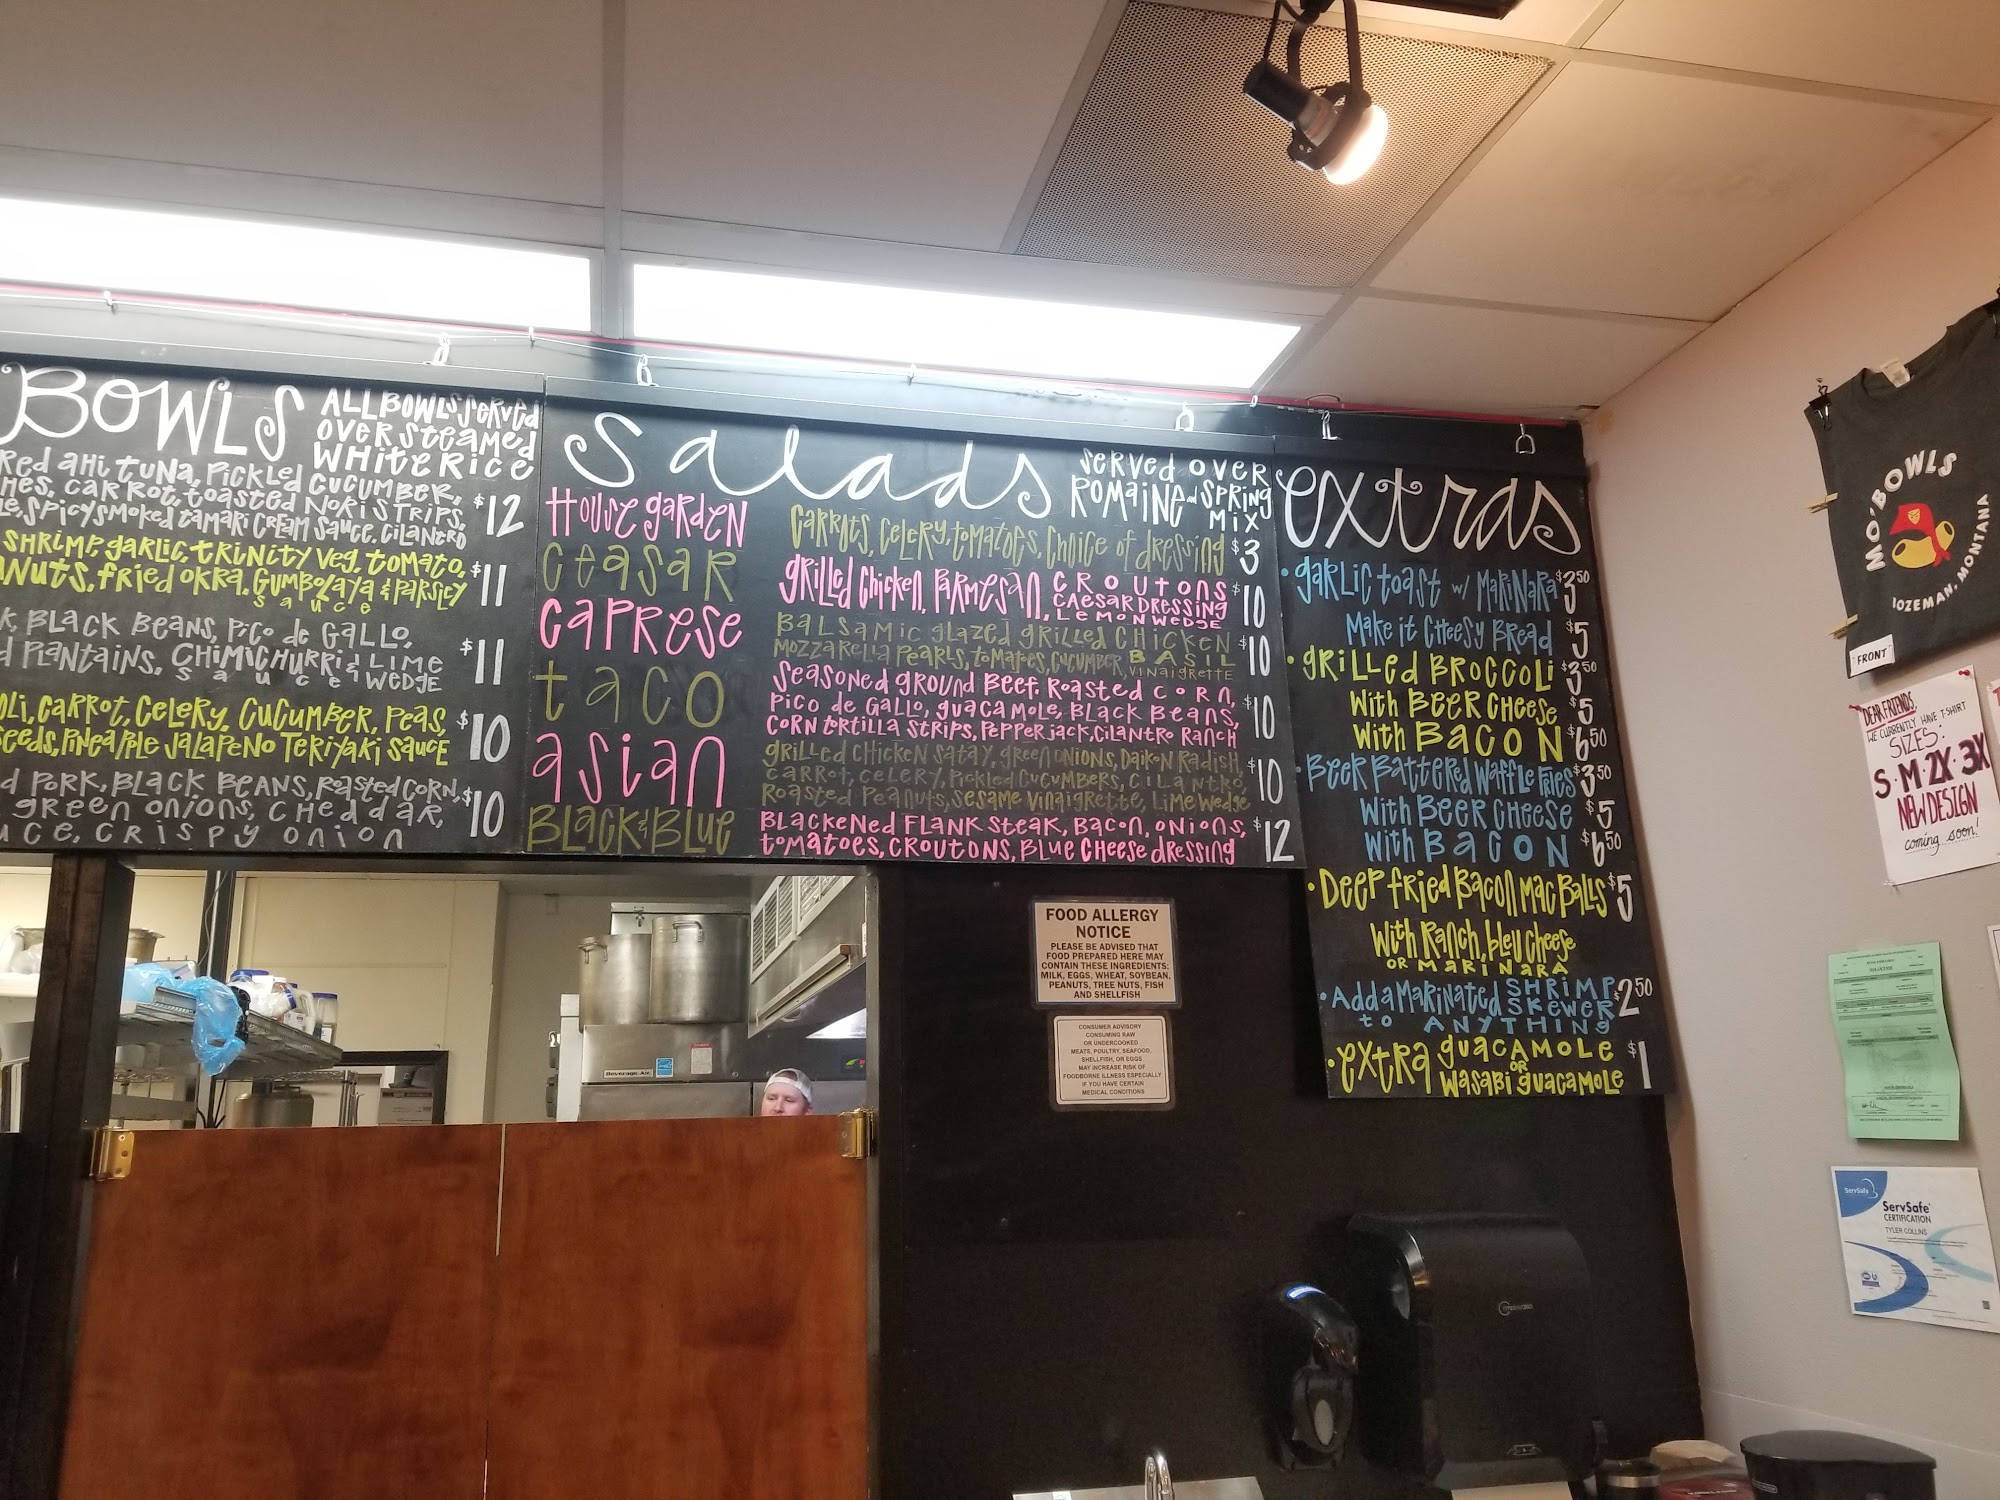 BOWLS
ALL BOWLS SERVED
OVER STEAMED
WHITE RICE
RED AHI TUNA, PICKLED CUCUMBER,
CARROT, TOASTED NORI STRIPS,
SPICY SMOKED TAMARI CREAM SAUCE, CILANTRO
$12
SHRIMP, GARLIC, TRINITY VEG, TOMATO,
FRIED OKRA, GUMBOLAYA & PARSLEY
SAUCE
$11
BLACK BEANS, PICO DE GALLO,
PLANTAINS, CHIMICHURRI & LIME
SAUCE WEDGE
$11
CARROT, CELERY, CUCUMBER, PEAS,
SEEDS, PINEAPPLE JALAPENO TERIYAKI SAUCE
$10
PORK, BLACK BEANS, ROASTED CORN,
GREEN ONIONS, CHEDDAR,
CRISPY ONION
$10
Salads
SERVED OVER
ROMAINE and SPRING
MIX
HOUSE GARDEN
CARROTS, CELERY, TOMATOES, CHOICE OF DRESSING
$3
CEASAR
GRILLED CHICKEN, PARMESAN, CROUTONS
CAESAR DRESSING
LEMON WEDGE
$10
CAPRESE
BALSAMIC GLAZED GRILLED CHICKEN
MOZZARELLA PEARLS, TOMATOES, CUCUMBER, BASIL
VINAIGRETTE
$10
TACO
SEASONED GROUND BEEF, ROASTED CORN,
PICO DE GALLO, GUACAMOLE, BLACK BEANS,
CORN TORTILLA STRIPS, PEPPERJACK, CILANTRO RANCH
$10
ASIAN
GRILLED CHICKEN SATAY, GREEN ONIONS, DAIKON RADISH,
CARROT, CELERY, PICKLED CUCUMBERS, CILANTRO,
ROASTED PEANUTS, SESAME VINAIGRETTE, LIME WEDGE
$10
BLACK & BLUE
BLACKENED FLANK STEAK, BACON, ONIONS,
TOMATOES, CROUTONS, BLUE CHEESE DRESSING
$12
extras
• GARLIC TOAST W/ MARINARA $3.50
MAKE IT CHEESY BREAD $5
• GRILLED BROCCOLI $3.50
WITH BEER CHEESE $5
WITH BACON $6.50
• BEER BATTERED WAFFLE FRIES $3.50
WITH BEER CHEESE $5
WITH BACON $6.50
• DEEP FRIED BACON MAC BALLS $5
WITH RANCH, BLEU CHEESE
OR MARINARA
• ADD A MARINATED SHRIMP
SKEWER
TO ANYTHING
$2.50
• EXTRA GUACAMOLE
OR
WASABI GUACAMOLE
$1
FOOD ALLERGY
NOTICE
PLEASE BE ADVISED THAT
FOOD PREPARED HERE MAY
CONTAIN THESE INGREDIENTS:
MILK, EGGS, WHEAT, SOYBEAN,
PEANUTS, TREE NUTS, FISH
AND SHELLFISH
CONSUMER ADVISORY
CONSUMING RAW
OR UNDERCOOKED
MEATS, POULTRY, SEAFOOD,
SHELLFISH, OR EGGS
MAY INCREASE RISK OF
FOODBORNE ILLNESS ESPECIALLY
IF YOU HAVE CERTAIN
MEDICAL CONDITIONS
Beverage-Air
MO'BOWLS
BOZEMAN, MONTANA
"FRONT"
DEAR FRIENDS,
WE CURRENTLY HAVE T-SHIRT
SIZES:
S·M·2X·3X
NEW DESIGN
coming soon!
ServSafe
ServSafe
CERTIFICATION
TYLER COLLINS